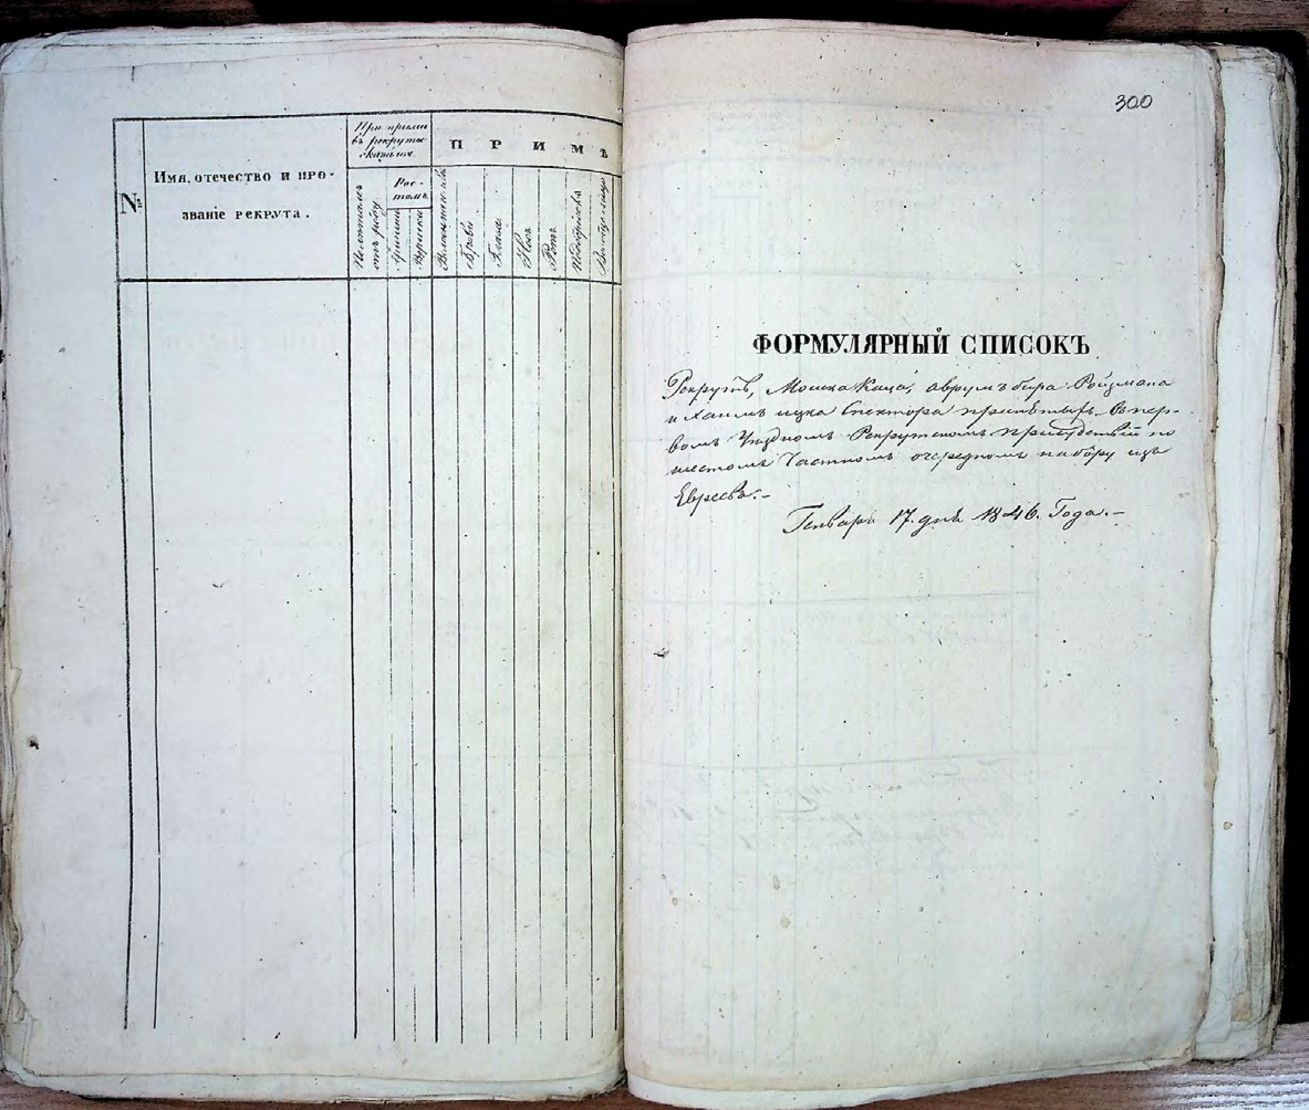 №
Имя, отечество и про-
званіе рекрута.
При пріемѣ
въ рекруты
оказалось
Рос-
томъ
Аршинъ
Вершковъ
Брови
Глаза
Носъ
Ротъ
Подбородокъ
ПРИМѢ
300
ФОРМУЛЯРНЫЙ СПИСОКЪ
Рекрутъ, Мошка Каца, Аврумъ бера Ройзмана
и Хаимъ ицка Спектора принятыхъ въ пер-
вомъ Уѣздномъ Рекрутскомъ присудствіи по
шестому Частному очередному набору изъ
Евреевъ.-
Генваря 17. дня 1846. Года.-